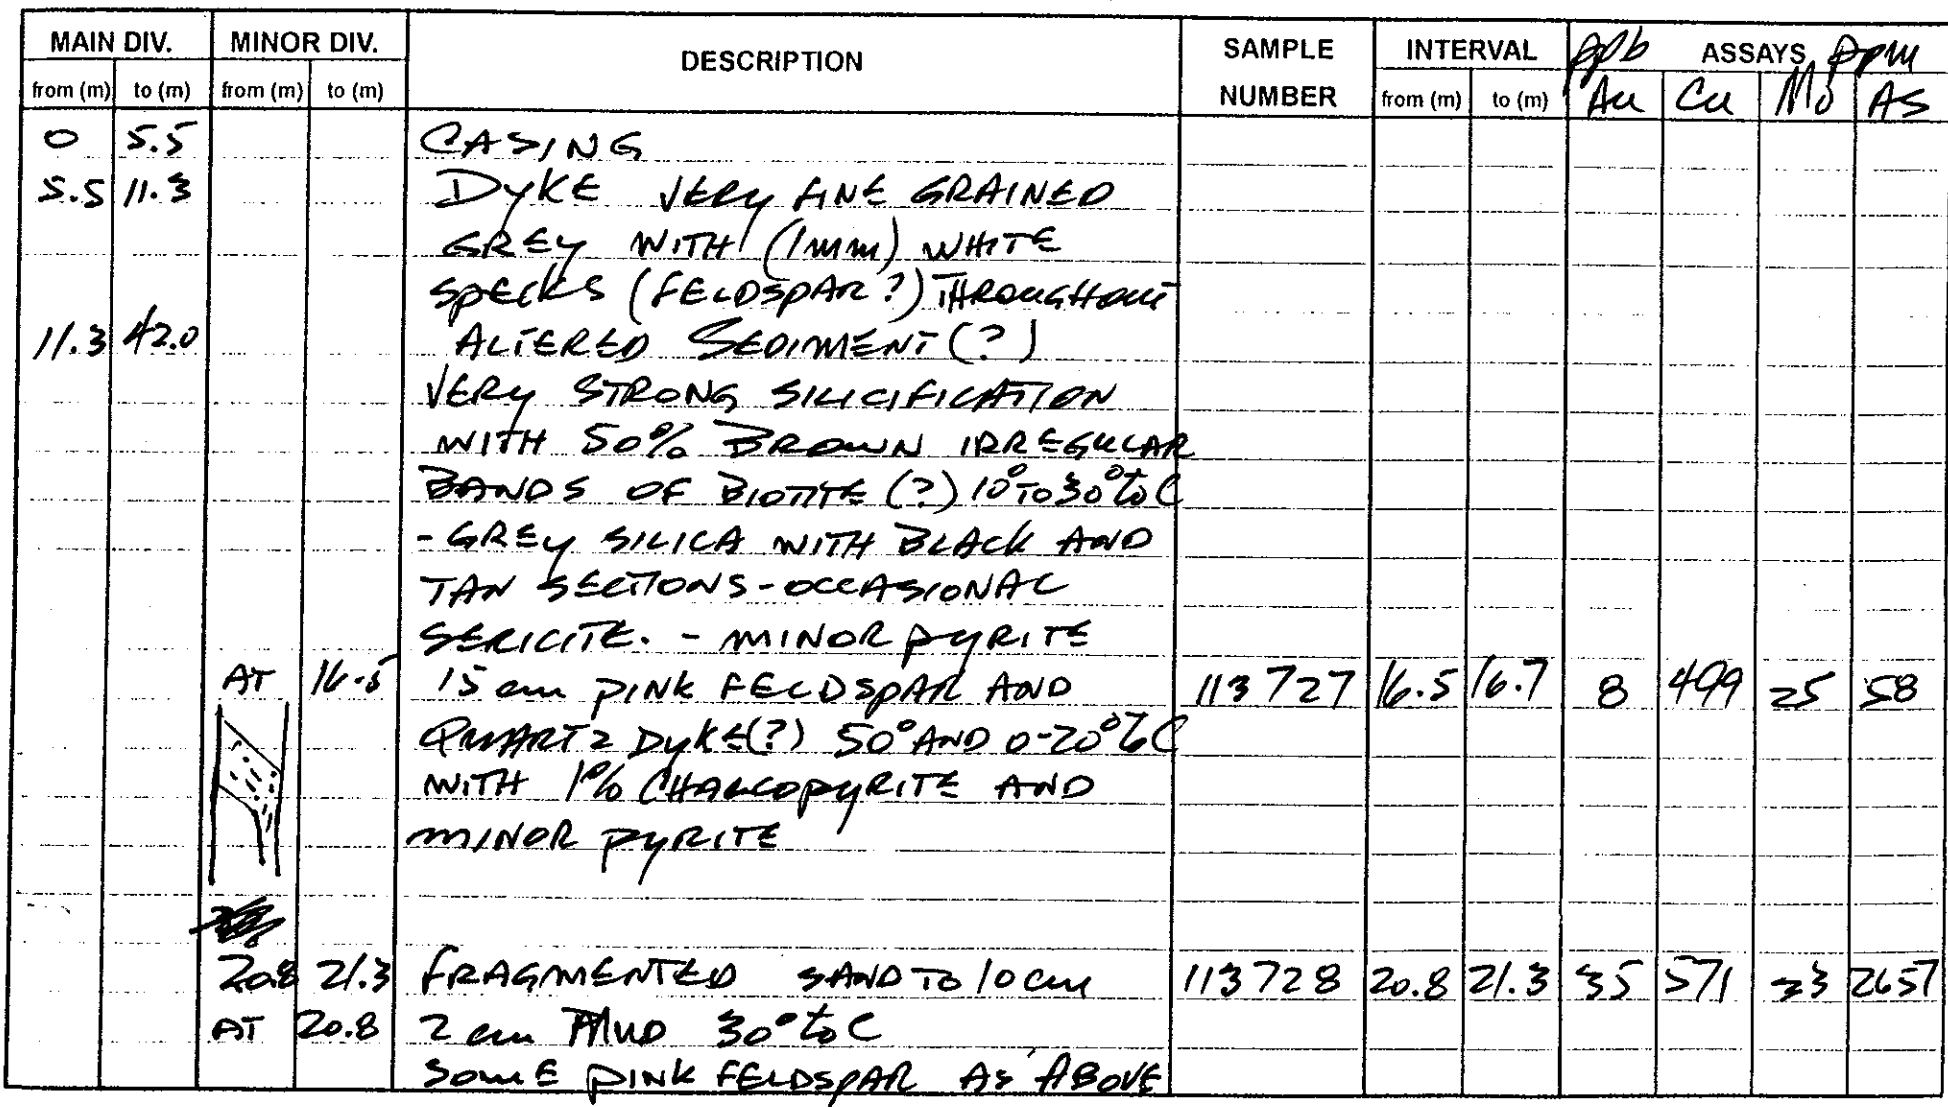 MAIN DIV. MINOR DIV. DESCRIPTION SAMPLE NUMBER INTERVAL ppb ASSAYS ppm
from (m) to (m) from (m) to (m) from (m) to (m) Au Cu Mo AS
0 5.5 CASING
5.5 11.3 DYKE VERY FINE GRAINED
GREY WITH (1mm) WHITE
SPECKS (FELDSPAR?) THROUGHOUT
11.3 42.0 ALTERED SEDIMENT (?)
VERY STRONG SILICIFICATION
WITH 50% BROWN IRREGULAR
BANDS OF BIOTITE (?) 10° TO 30° to C
- GREY SILICA WITH BLACK AND
TAN SECTIONS - OCCASIONAL
SERICITE. - MINOR PYRITE
AT 16.5 15 cm PINK FELDSPAR AND 113727 16.5 16.7 8 499 25 58
QUARTZ DYKE(?) 50° AND 0-20° to C
WITH 1% CHALCOPYRITE AND
MINOR PYRITE
20.8 21.3 FRAGMENTED SAND TO 10 cm 113728 20.8 21.3 35 571 33 2657
AT 20.8 2 cm MUD 30° to C
SOME PINK FELDSPAR AS ABOVE